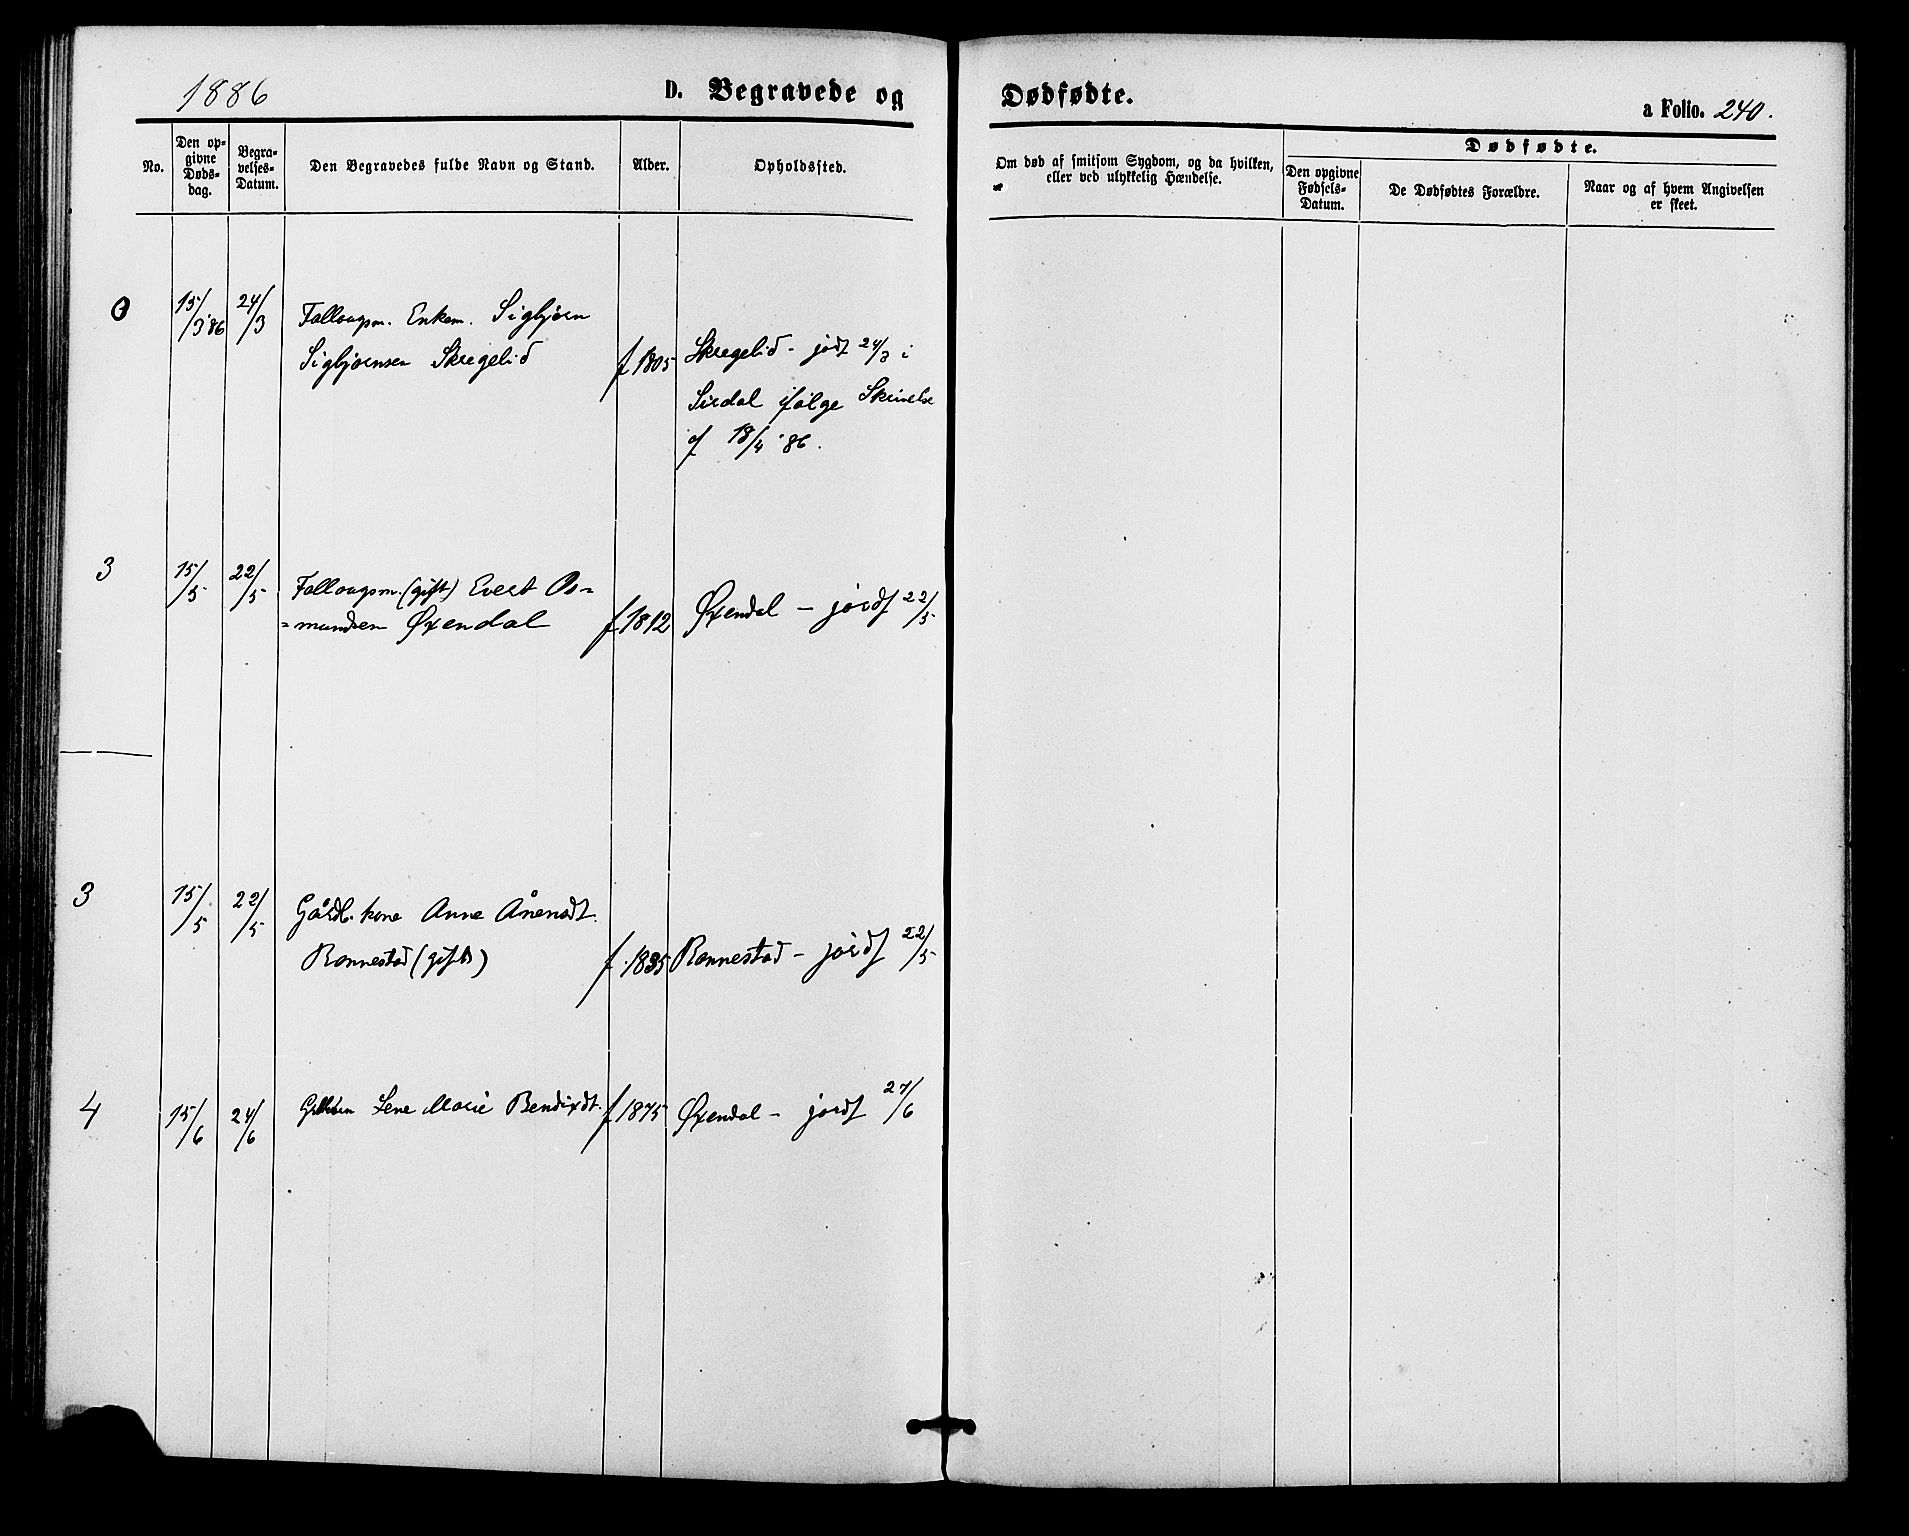 1886
D. Begravede og Dødfødte.
a Folio. 240.
No.
Den opgivne Døds-dag.
Begravelses-Datum.
Den Begravedes fulde Navn og Stand.
Alder.
Opholdssted.
Om død af smitsom Sygdom, og da hvilken,
eller ved ulykkelig Hændelse.
Dødfødte.
Den opgivne Fødsels-Datum.
De Dødfødtes Forældre.
Naar og af hvem Angivelsen er skeet.
0 15/3 '86 24/3 Fattiglm. Enkem. Sigbjørn
Sigbjørnsen Skregelid f 1805 Skregelid - jordf 24/3 i
Sirdal ifølge Skrivelse
af 18/4 '86.
3 15/5 22/5 (gift) Evert As=
=mundsen Øxendal f 1812 Øxendal - jordf 22/5
3 15/5 22/5 Gårdb. kone Anne Ånensdt.
Ronnestad (gift) f. 1835 Ronnestad - jordf 22/5
4 15/6 24/6 Lene Marie Bendixdt. f 1875 Øxendal - jordf 27/6